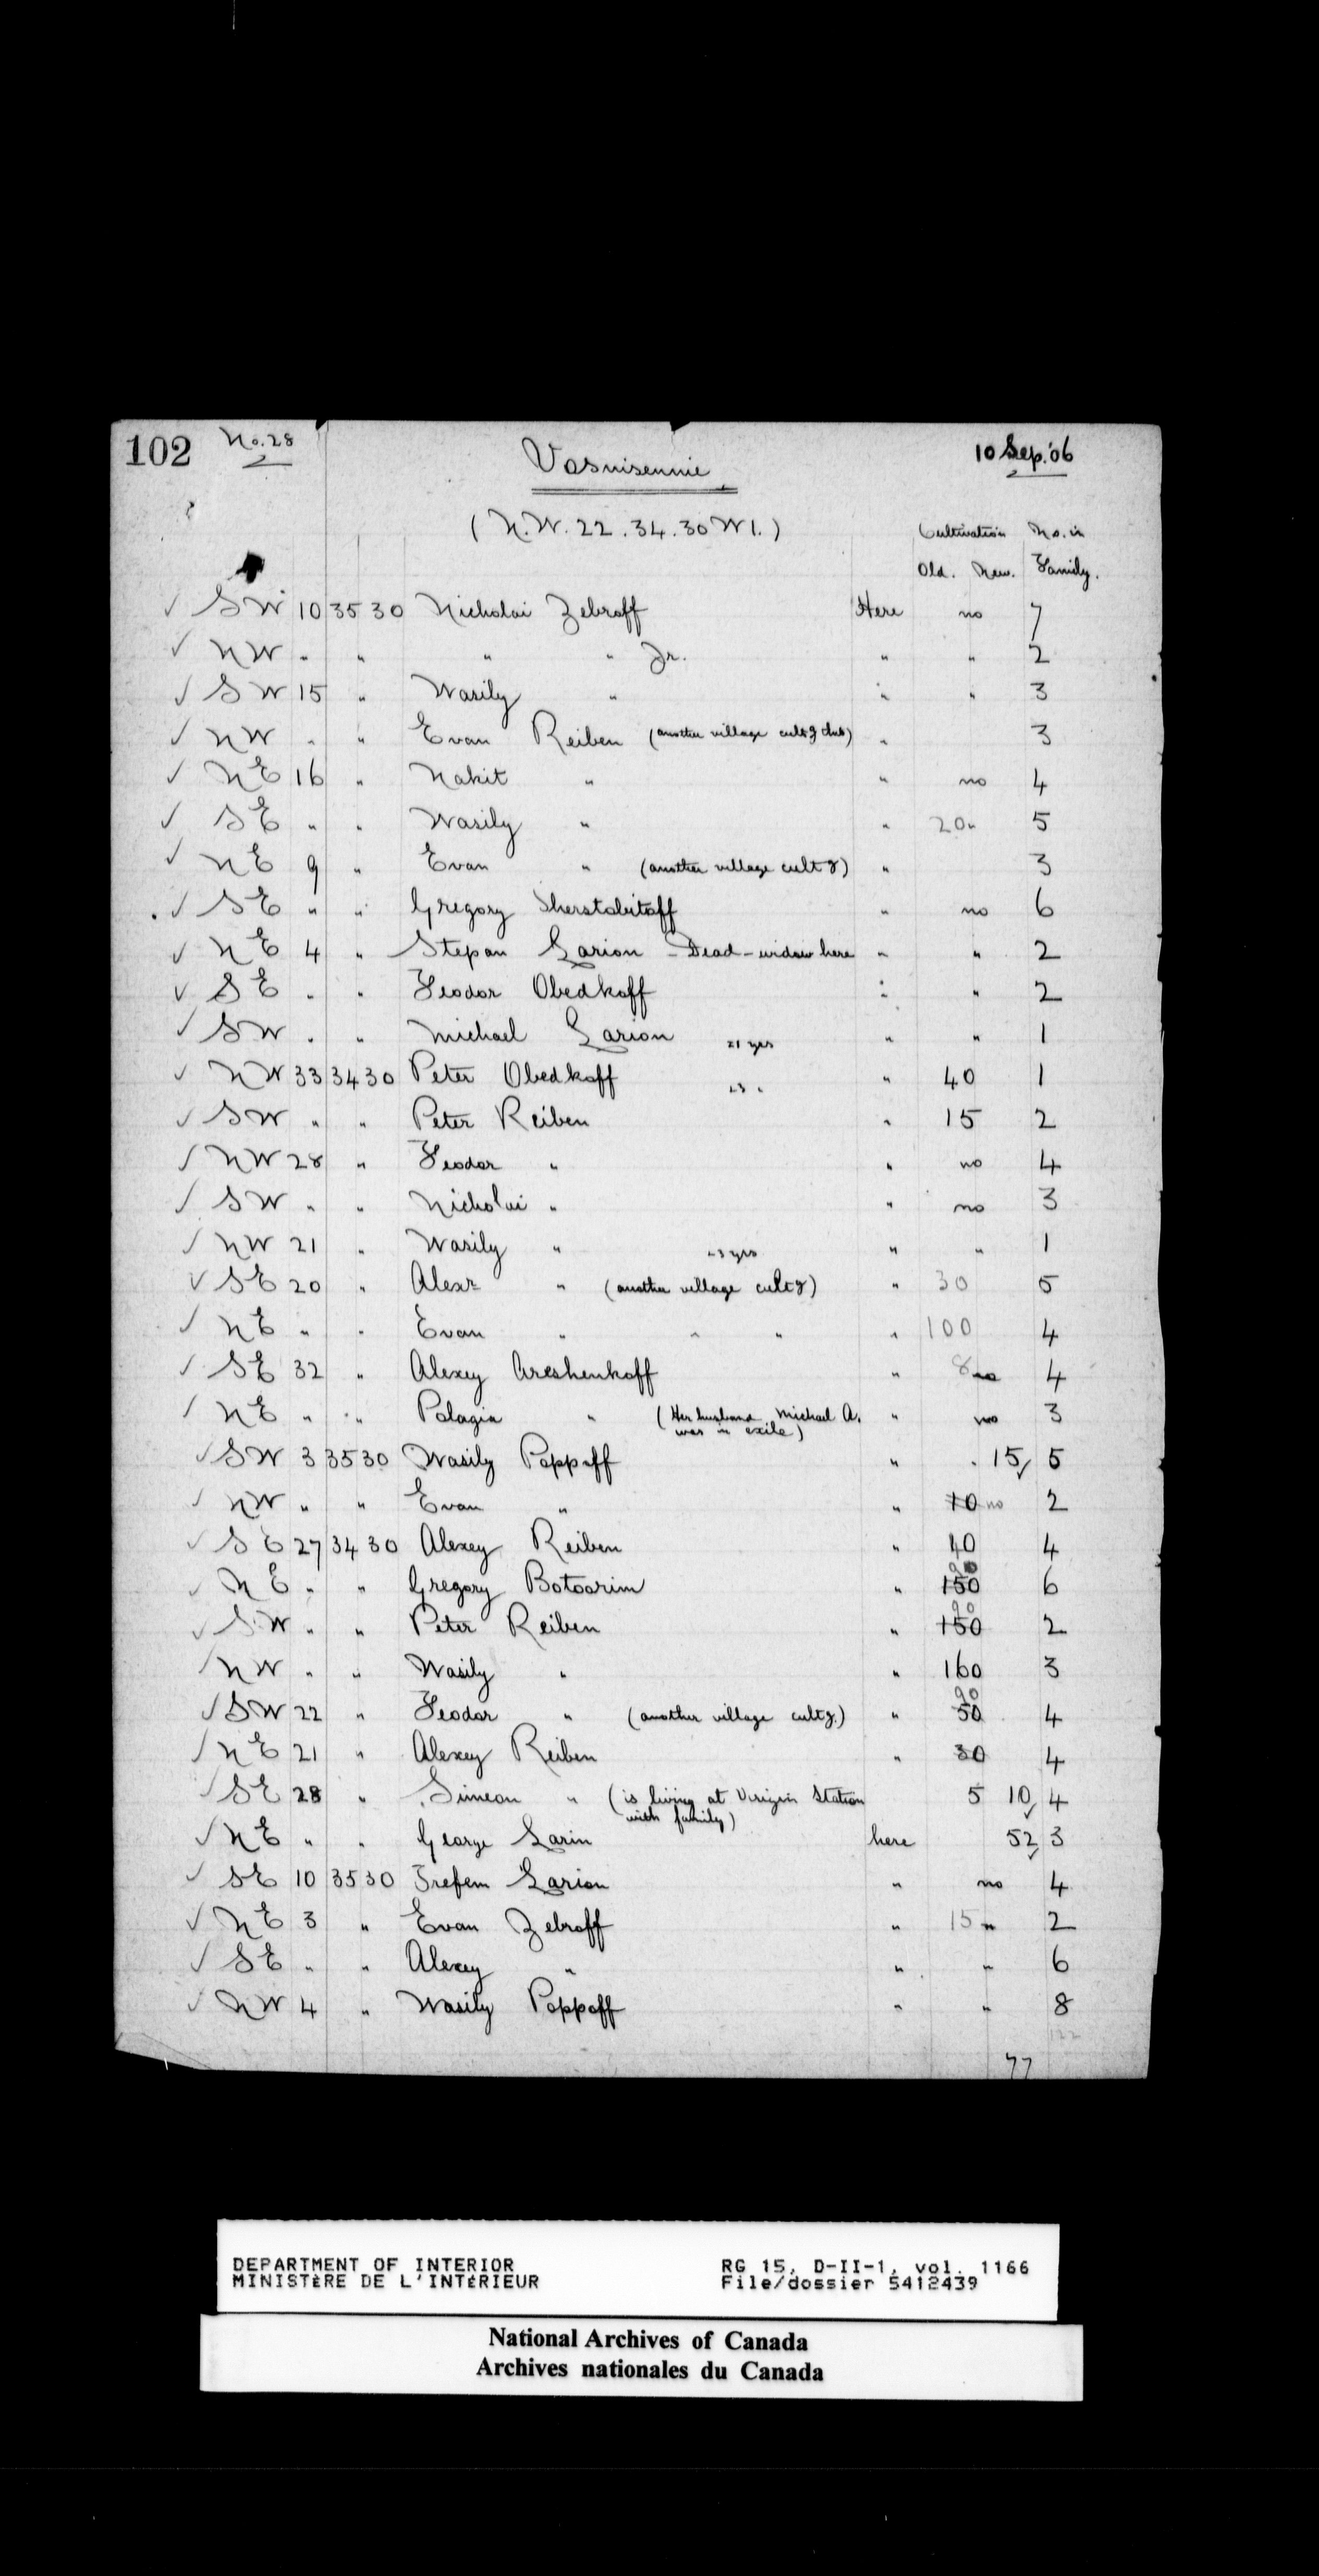 102 No. 28 Vosnisennie 10 Sep. '06
(N.W. 22. 34. 30 W1.)
Cultivation No. in
Old. New. Family.
✓ SW 10 35 30 Nicholai Zebroff Here no 7
✓ NW " " " " Jr. " " 2
✓ SW 15 " Wasily " " " 3
✓ NW " " Evan Reiben (another village cultg) " 3
✓ NE 16 " Nakit " " no 4
✓ SE " " Wasily " " 20 " 5
✓ NE 9 " Evan " (another village cultg) " 3
✓ SE " " Gregory Sherstobitoff " no 6
✓ NE 4 " Stepan Larion - Dead - widow here " " 2
✓ SE " " Feodor Obedkoff " " 2
✓ SW " " Michael Larion 21 yrs " " 1
✓ NW 33 34 30 Peter Obedkoff 23 " " 40 1
✓ SW " " Peter Reiben " 15 2
✓ NW 28 " Feodor " " no 4
✓ SW " " Nicholai " " no 3
✓ NW 21 " Wasily " 23 yrs " " 1
✓ SE 20 " Alexr " (another village cultg) " 30 5
✓ NE " " Evan " " " " 100 4
✓ SE 32 " Alexey Areshenkoff " 8 no 4
✓ NE " " Polagia " (Her husband Michael A. " no 3
was in exile)
✓ SW 3 35 30 Wasily Poppoff " 15 ✓ 5
✓ NW " " Evan " " 10 no 2
✓ SE 27 34 30 Alexey Reiben " 40 4
✓ NE " " Gregory Botoorim " 150 6
90
✓ SW " " Peter Reiben " 150 2
✓ NW " " Wasily " " 160 3
90
✓ SW 22 " Feodor " (another village cultg.) " 50 4
✓ NE 21 " Alexey Reiben " 30 4
✓ SE 28 " Simeon " (is living at Verigin Station 5 10 ✓ 4
with family)
✓ NE " " George Larin here 52 ✓ 3
✓ SE 10 35 30 Trefem Larion " no 4
✓ NE 3 " Evan Zebroff " 15 " 2
✓ SE " " Alexey " " " 6
✓ NW 4 " Wasily Poppoff " " 8
122
77
DEPARTMENT OF INTERIOR RG 15, D-II-1, vol. 1166
MINISTÈRE DE L'INTÉRIEUR File/dossier 5412439
National Archives of Canada
Archives nationales du Canada